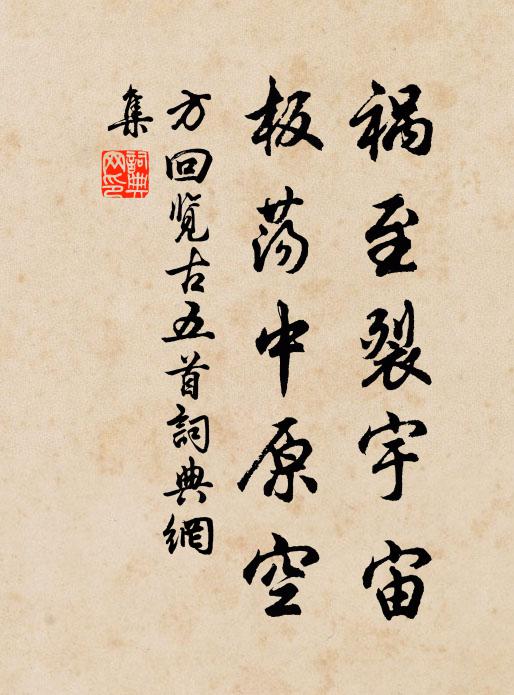 祸至裂宇宙
板荡中原空
方回览古五首詞典網
集
詞典
网印